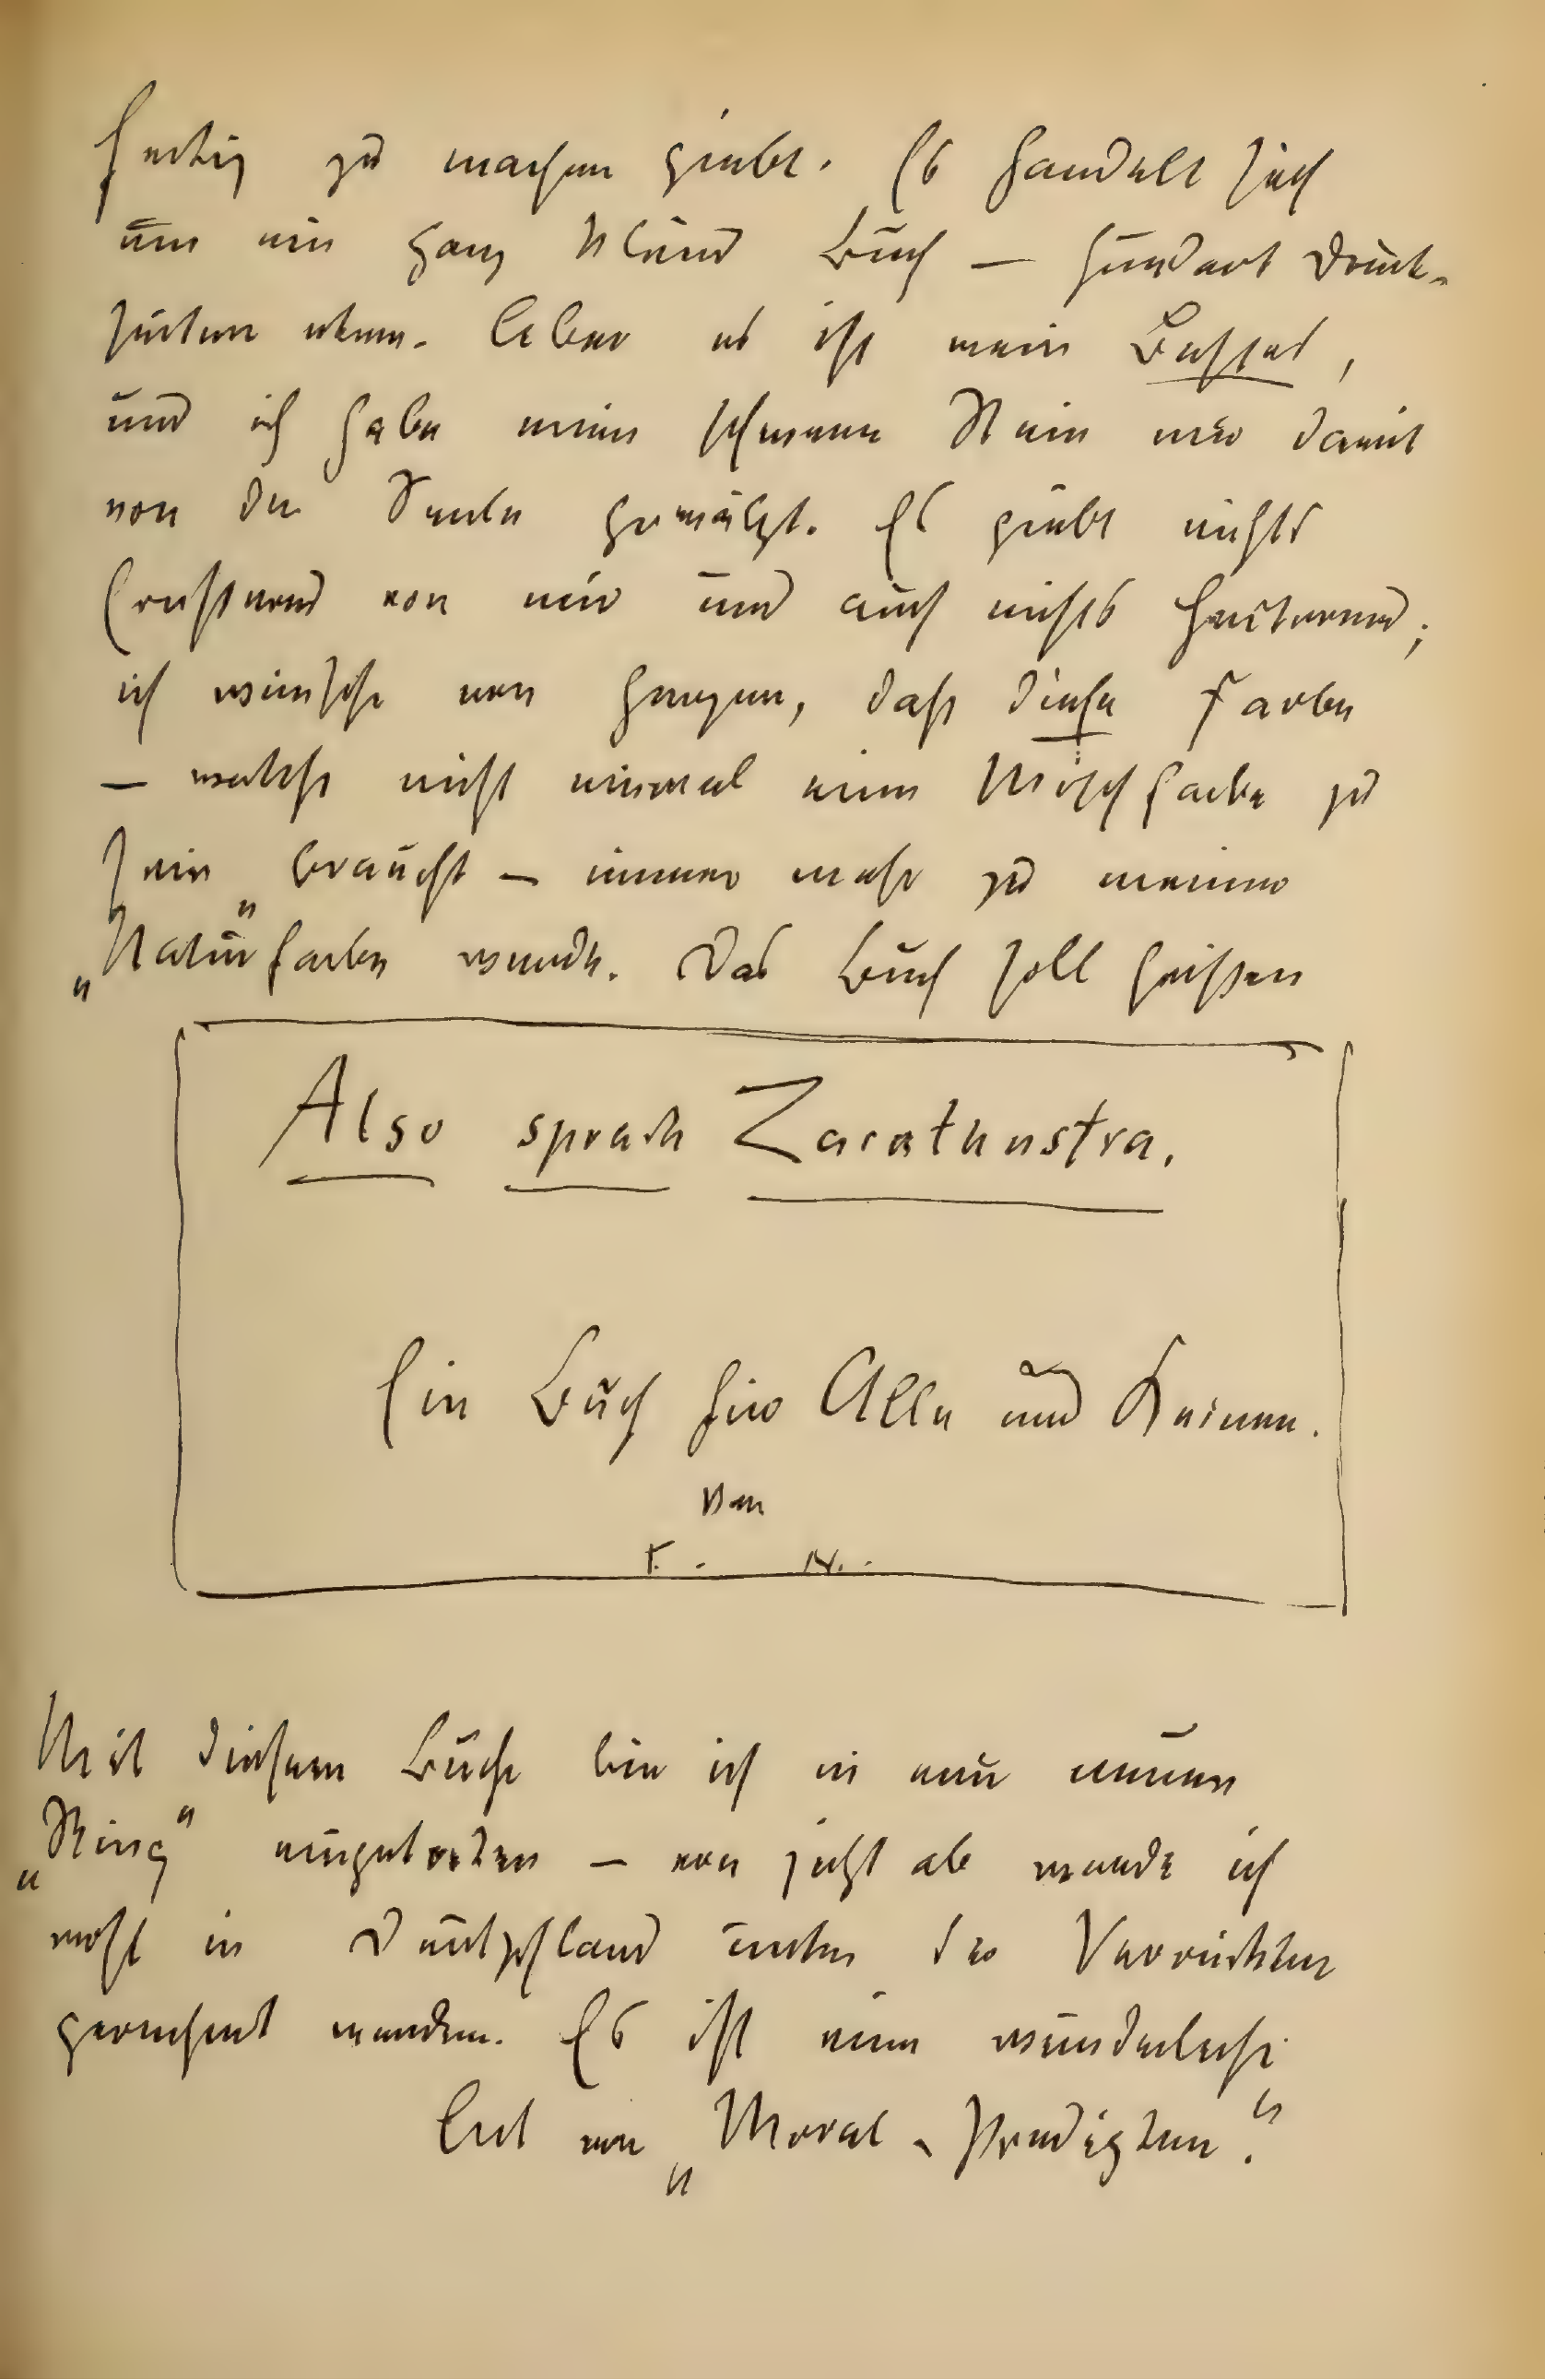 fertig zu machen giebt. Es handelt sich
um ein ganz kleines Buch — hundert Druck-
seiten etwa. Aber es ist mein Bestes,
und ich habe einen schweren Stein mir damit
von der Seele gewälzt. Es giebt nichts
Ernsteres von mir und auch nichts Heitereres;
ich wünsche von Herzen, daß diese Farbe
— welche nicht einmal eine Mischfarbe zu
sein braucht — immer mehr zu meiner
„Natur“farbe werde. Das Buch soll heißen
Also sprach Zarathustra.
Ein Buch für Alle und Keinen.
Von
F. N.
Mit diesem Buche bin ich in einen neuen
„Ring“ eingetreten — von jetzt ab werde ich
wohl in Deutschland unter die Verrückten
gerechnet werden. Es ist eine wunderliche
Art von „Moral-Predigten“.